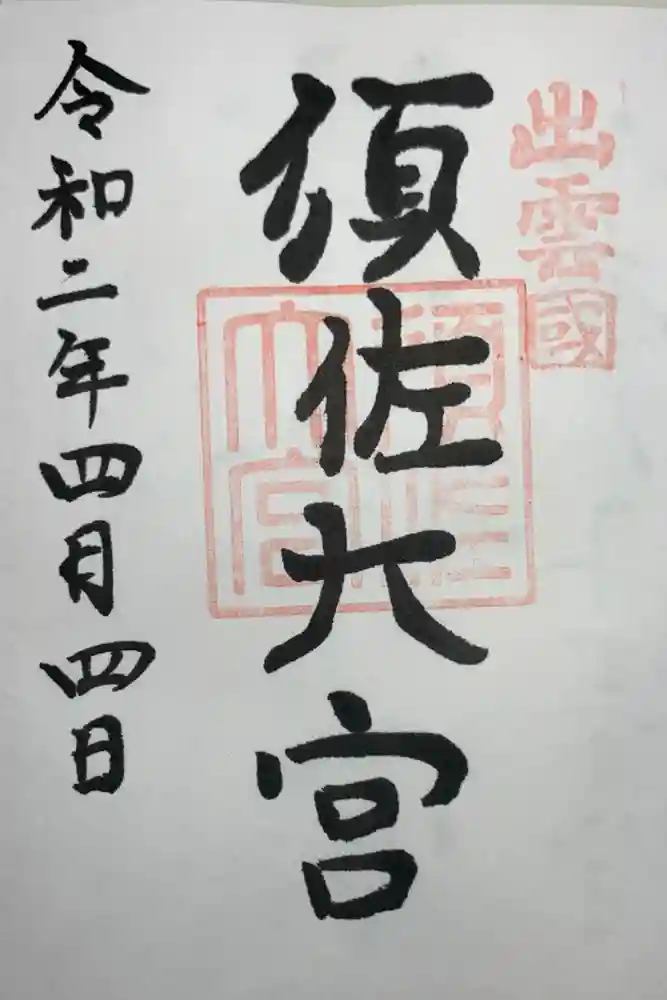 出雲國
須佐大宮
須佐大宮
令和二年四月四日